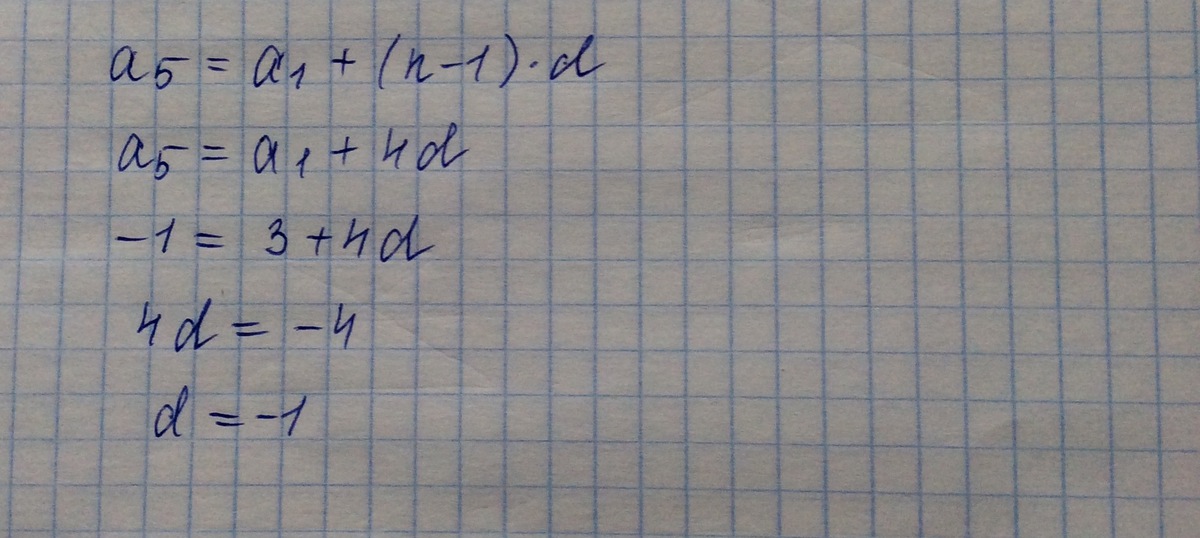 a5 = a1 + (n-1)·d
a5 = a1 + 4d
-1 = 3+4d
4d = -4
d = -1